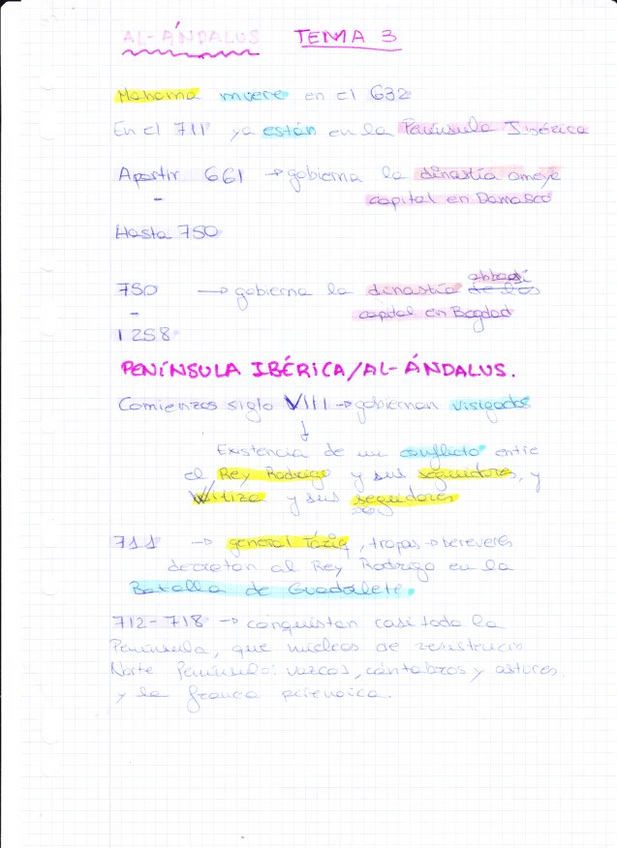 AL-ÁNDALUS TEMA 3
Mahoma muere en el 632
En el 711 ya están en la Península Ibérica
Apartir 661 → gobierna la dinastía omeya
- capital en Damasco
Hasta 750
abbasí
750 → gobierna la dinastía de los
- capital en Bagdad
1258
PENÍNSULA IBÉRICA/AL-ÁNDALUS.
Comienzos siglo VIII → gobiernan visigodos
↓
Existencia de un conflicto entre
el Rey Rodrigo y sus seguidores, y
Witiza y sus seguidores
711 → general Táriq, tropas → bereveres
decretan al Rey Rodrigo en la
Batalla de Guadalete.
712-718 → conquistan casi toda la
Península, que núcleos de resistencia
Norte Península: vazcos, cántabros y astures
y la franca pirenaica.